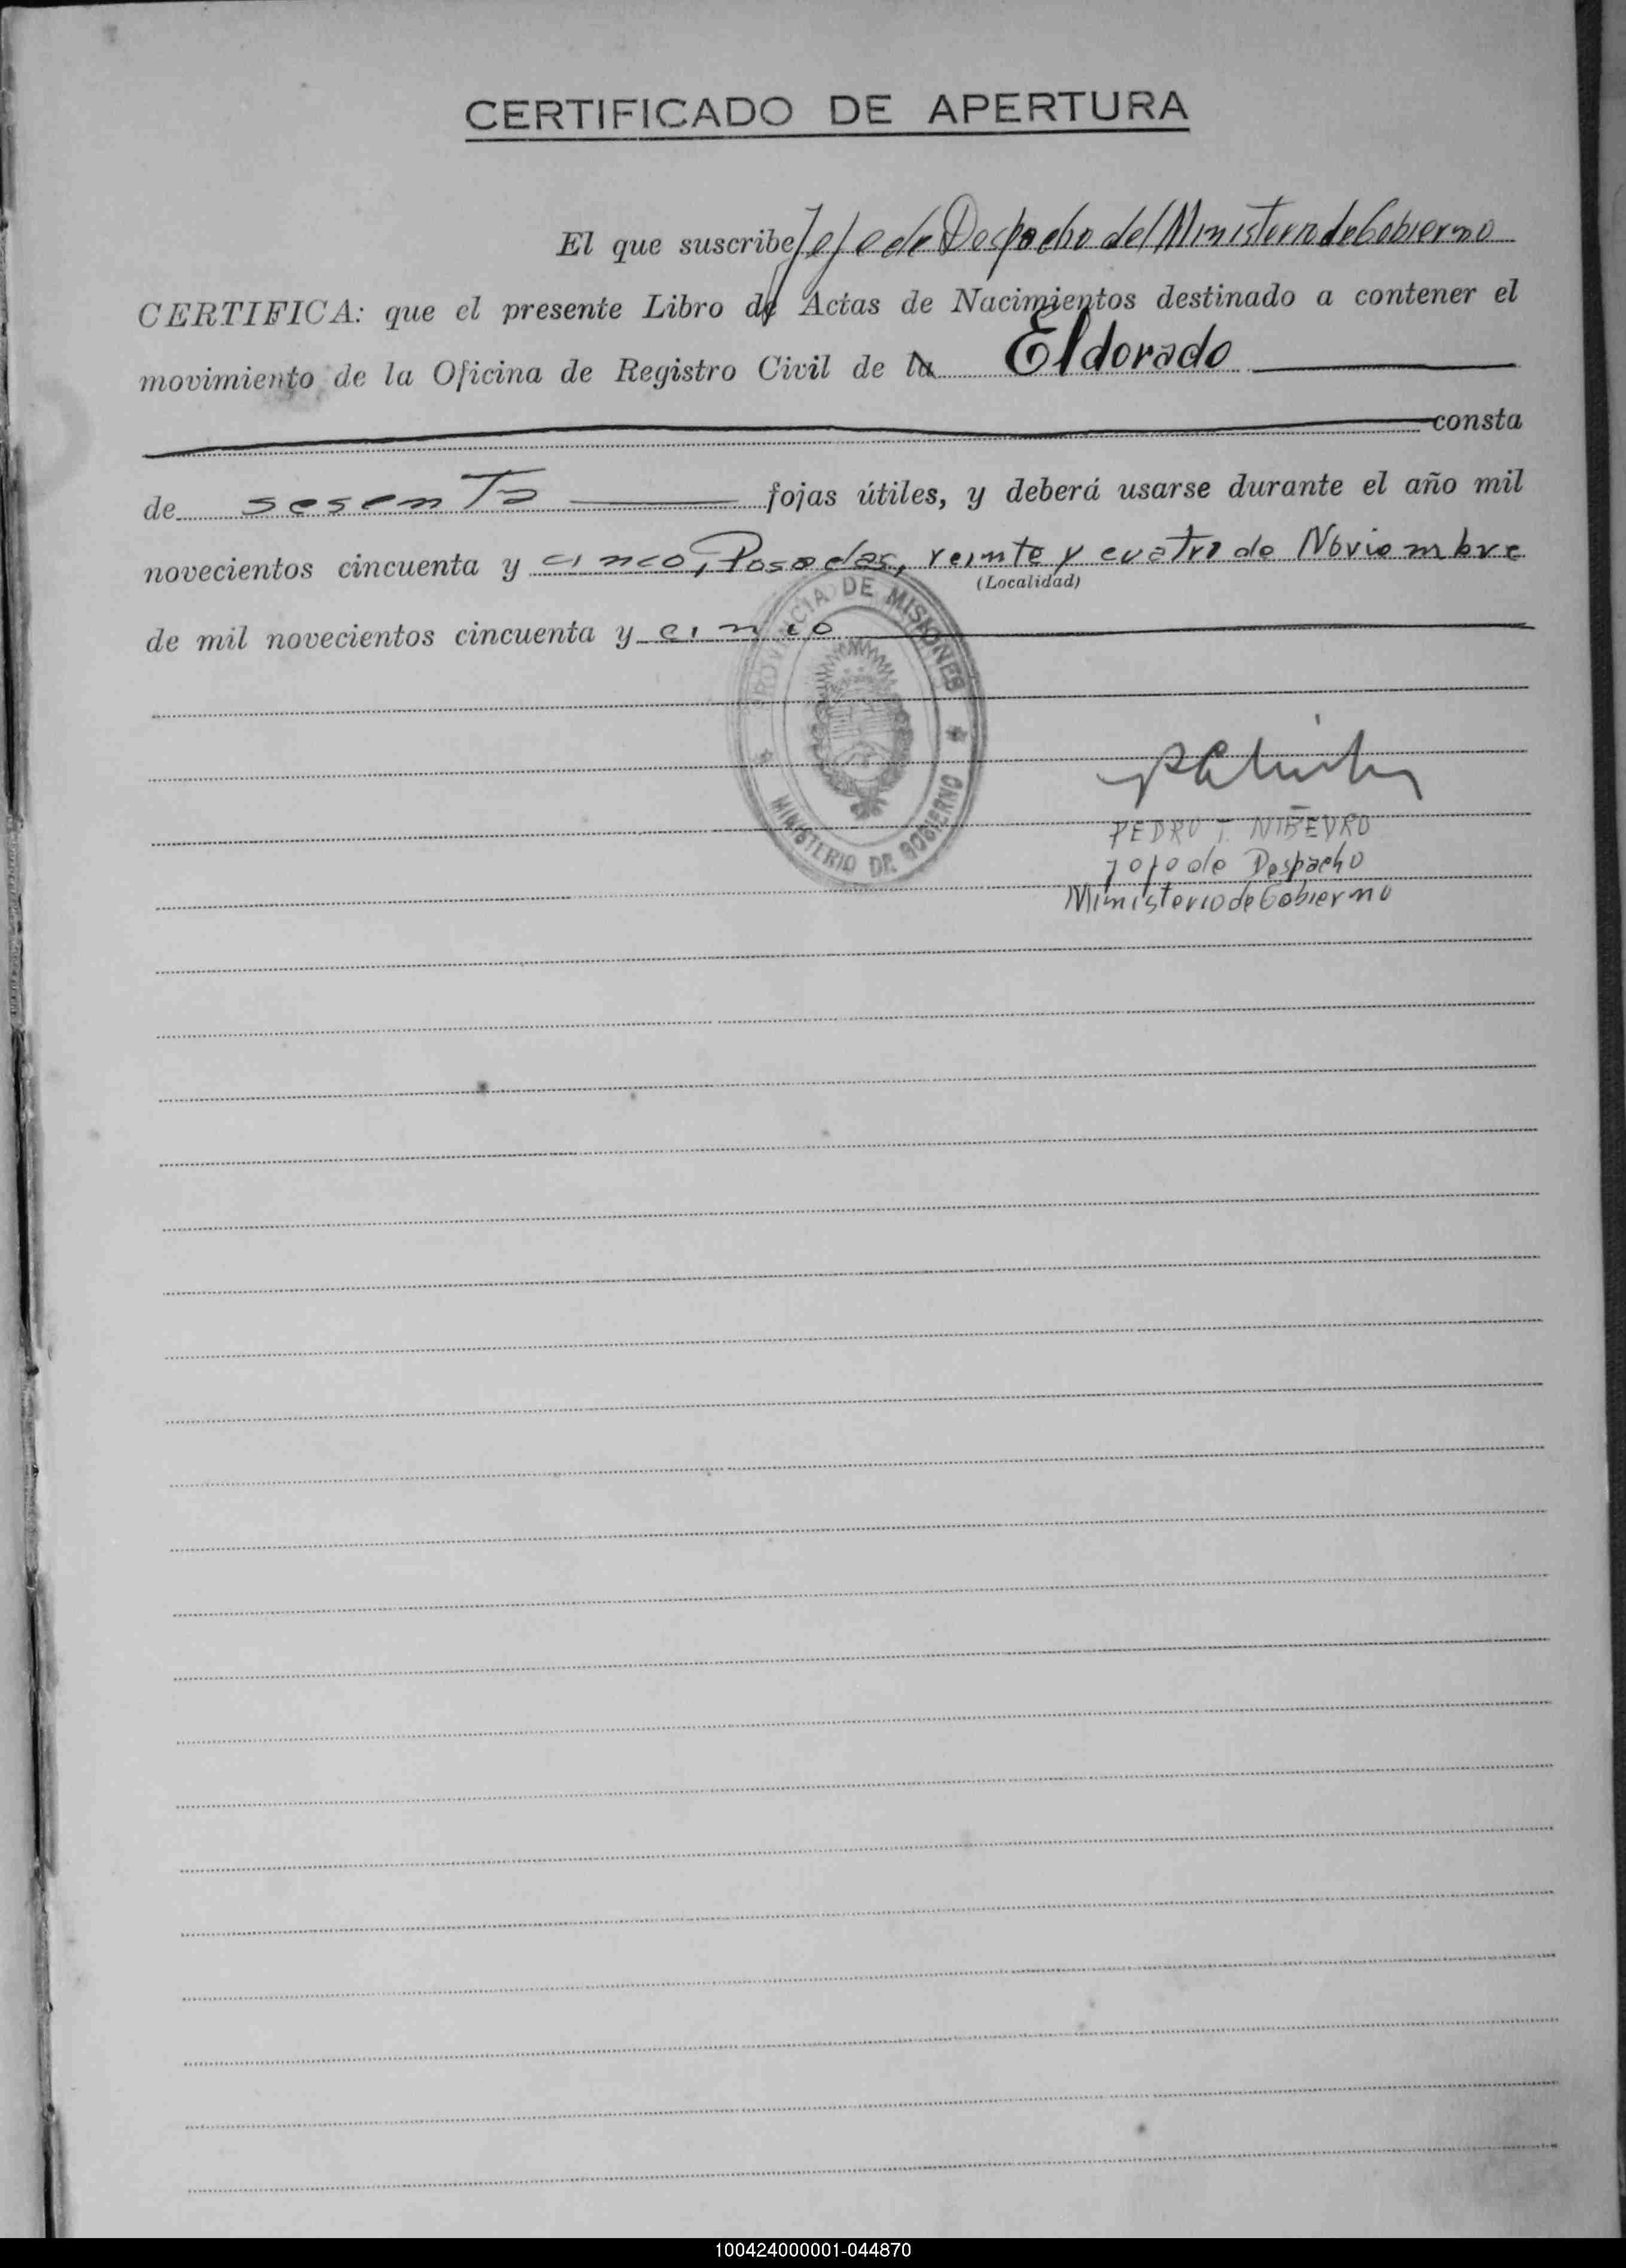 CERTIFICADO DE APERTURA
El que suscribe Jefe de Despacho del Ministerio de Gobierno
CERTIFICA: que el presente Libro de Actas de Nacimientos destinado a contener el
movimiento de la Oficina de Registro Civil de la Eldorado
consta
de sesenta fojas útiles, y deberá usarse durante el año mil
novecientos cincuenta y cinco, Posadas, veinte y cuatro de Noviembre
(Localidad)
de mil novecientos cincuenta y cinco
PROVINCIA DE MISIONES
MINISTERIO DE GOBIERNO
PEDRO T.
Jefe de Despacho
Ministerio de Gobierno
100424000001-044870